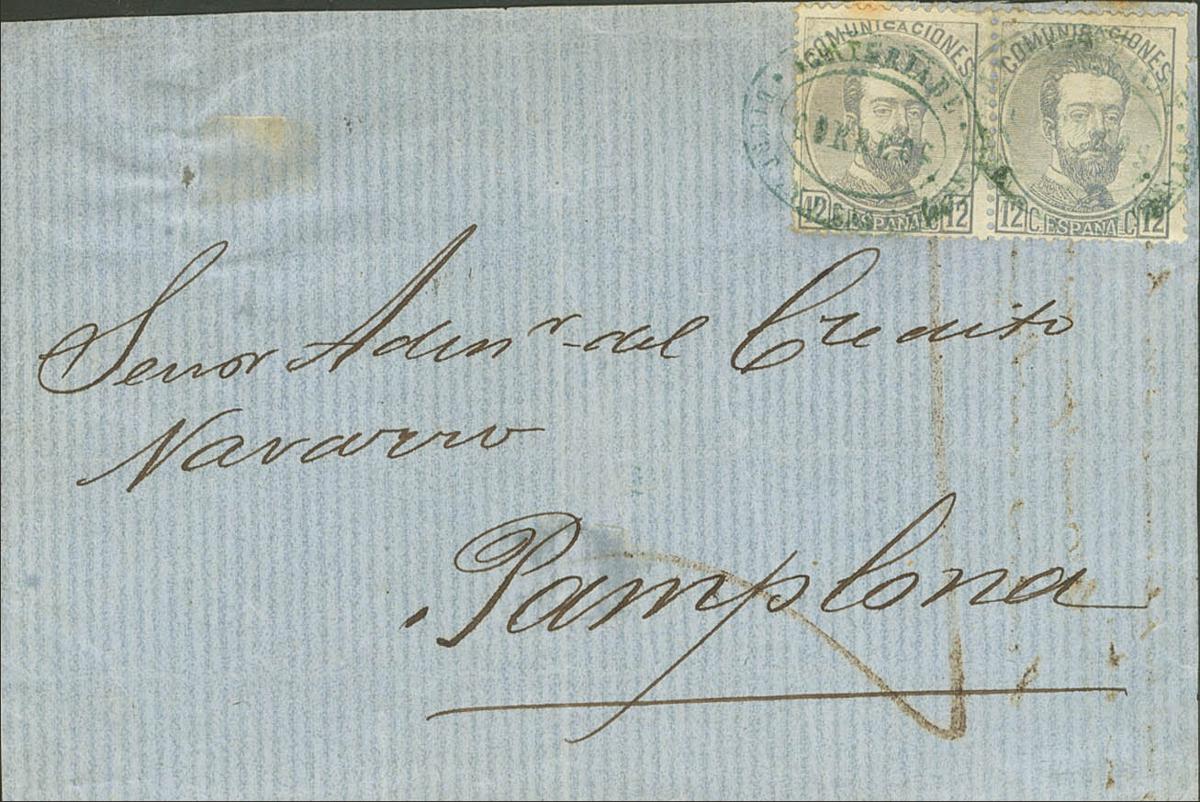 COMUNICACIONES COMUNICACIONES
12 C. ESPAÑA C 12 12 C. ESPAÑA C 12
Señor Admr. del Credito
Navarro
Pamplona